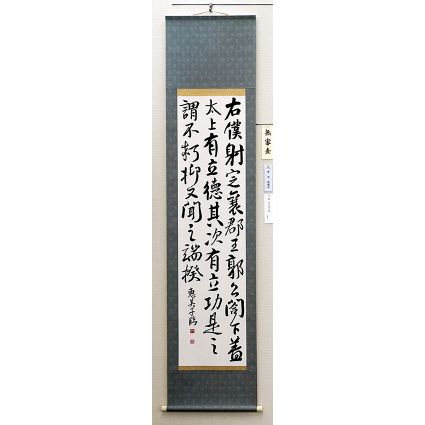 右僕射定襄郡王郭公閤下蓋
太上有立德其次有立功是之
謂不朽抑又聞之端揆
恵美子臨
無審査